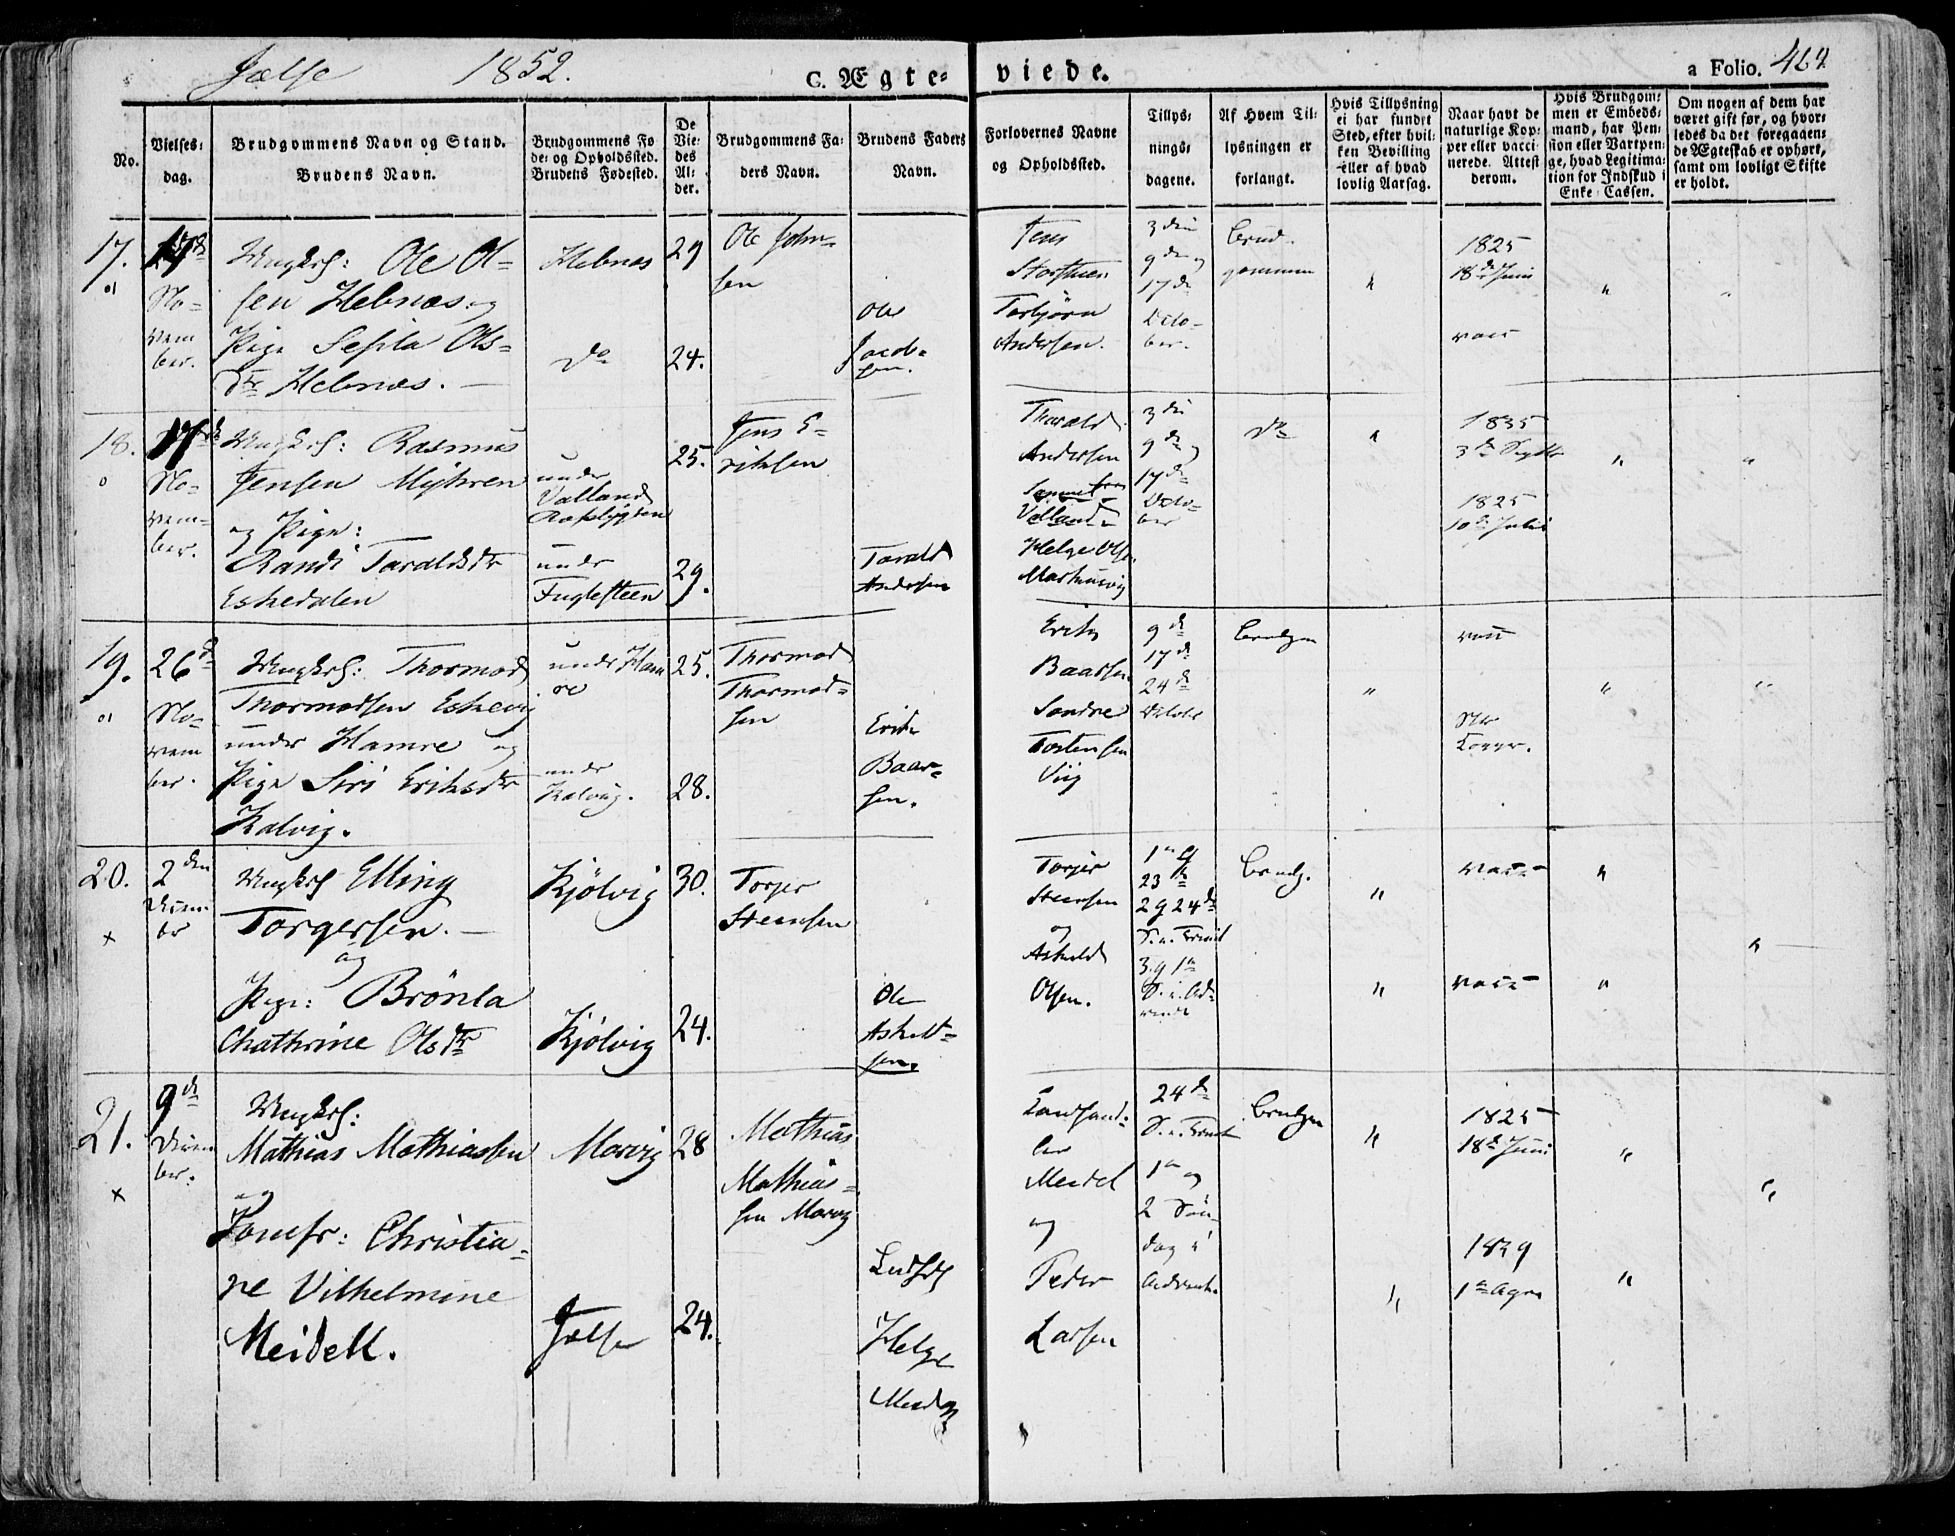 Jælse 1852.
C. Ægte-viede.
a Folio. 464
No.
Vielses-dag.
Brudgommens Navn og Stand. Brudens Navn.
Brudgommens Fødе- og Opholdssted. Brudens Fødested.
De Viedes Alder.
Brudgommens Faders Navn.
Brudens Faders Navn.
Forlovernes Navne og Opholdsted.
Tillysningsdagene.
Af Hvem Tillysningen er forlangt.
Hvis Tillysning ei har fundet Sted, efter hvilken Bevilling eller af hvad lovlig Aarsag.
Naar havt de naturlige Kopper eller vaccinerede. Attest derom.
Hvis Brudgommen er Embedsmand, har Pension eller Vartpenge, hvad Legitimation for Indskud i Enke-Cassen.
Om nogen af dem har været gift før, og hvorledes da det foregaaende Ægteskab er ophørt, samt om lovligt Skifte er holdt.
17.
No-
vem
ber.
Ungkrl: Ole Ol-
sen Helenæs og
Pige Ols-
dtr Helenæs.
Helenæs
do
29
24.
Ole John-
sen
Ole
Jacob-
sen.
Jens
Torbjørn
Andersen.
3die
9de og
17de
Octo-
ber.
Brud-
gommen
"
1825
18de Juni
vacc
"
"
18.
17de
No-
vem-
ber.
Ungkrl: Rasmus
Jensen Myhren
og Pige:
Randi Taraldsdtr
Eskedalen
under
Valland
under
Fuglesteen
25.
29.
Jens E-
riksen
Tarald
Andersen
Tharald
Andersen
Valland
Helge Olsen
3die
9de og
17de
Octo-
ber
do
"
1835
3de Septbr
1825
10de Juli
"
"
19.
26de
No-
vem
ber.
Ungkrl: Thormod
Thormodsen Eskevig
under Hamre og
Pige Siri Eriksdtr
Kalvig.
under Ham
re
under
Kalvig.
25.
28.
Thormod
Thormod-
sen
Erik
Baar-
sen.
Erik
Baarsen
Sondre
Tostensen
Viig
9de
17de
24de
Octobr
Brudgen
"
vacc
"
"
20.
2den
Decem
br
x
Ungkrl Elling
Torgersen.
og
Pige: Brønla
Chathrine Olsdtr
Kjølvig
Kjølvig
30.
24.
Torger
Steensen
Ole
Askelt-
sen.
Torger
Steensen
og
Askeld
Olsen.
1n og
23de
2 g 24de
S. e. Trinit
3. g 1n
S. i. Ad-
vent
Brudg.
"
"
vacc
vacc
"
"
"
21.
9de
Decem
ber.
x
Ungkrl:
Mathias Mathiassen
og
Jomfr: Christia-
ne Vilhelmine
Meidell.
Marvig
Jælse
28
24.
Mathias
Mathias-
sen Marvig
Helge
Meidell
Landhand-
ler
Meidel
og
Peder
Larsen
24de
S. e. Trinit
1n og
2 Søn-
dag i
Advent.
Brudgen
"
"
1825
18de Juni
1829
"
"
"